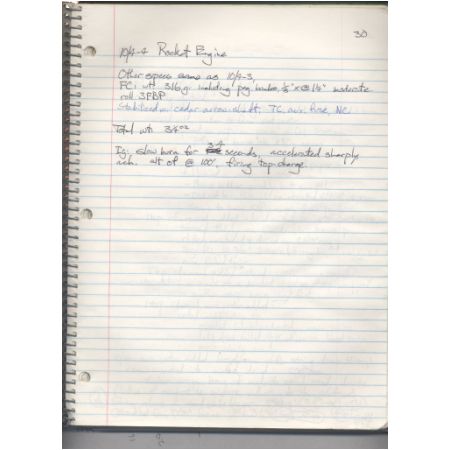 30
10/4-4 Rocket Engine
Other specs same as 10/4-3,
FC: wt 3.16g. including peg, 1/2" x @ 1 1/2" moderate
roll 3FBP
Stabilized w. cedar arrow shaft, TC, fuse, NC
Total wt. 3/4 oz
Ig: slow burn for 3-4 seconds, accelerated sharply
alt of @ 100', firing top charge.